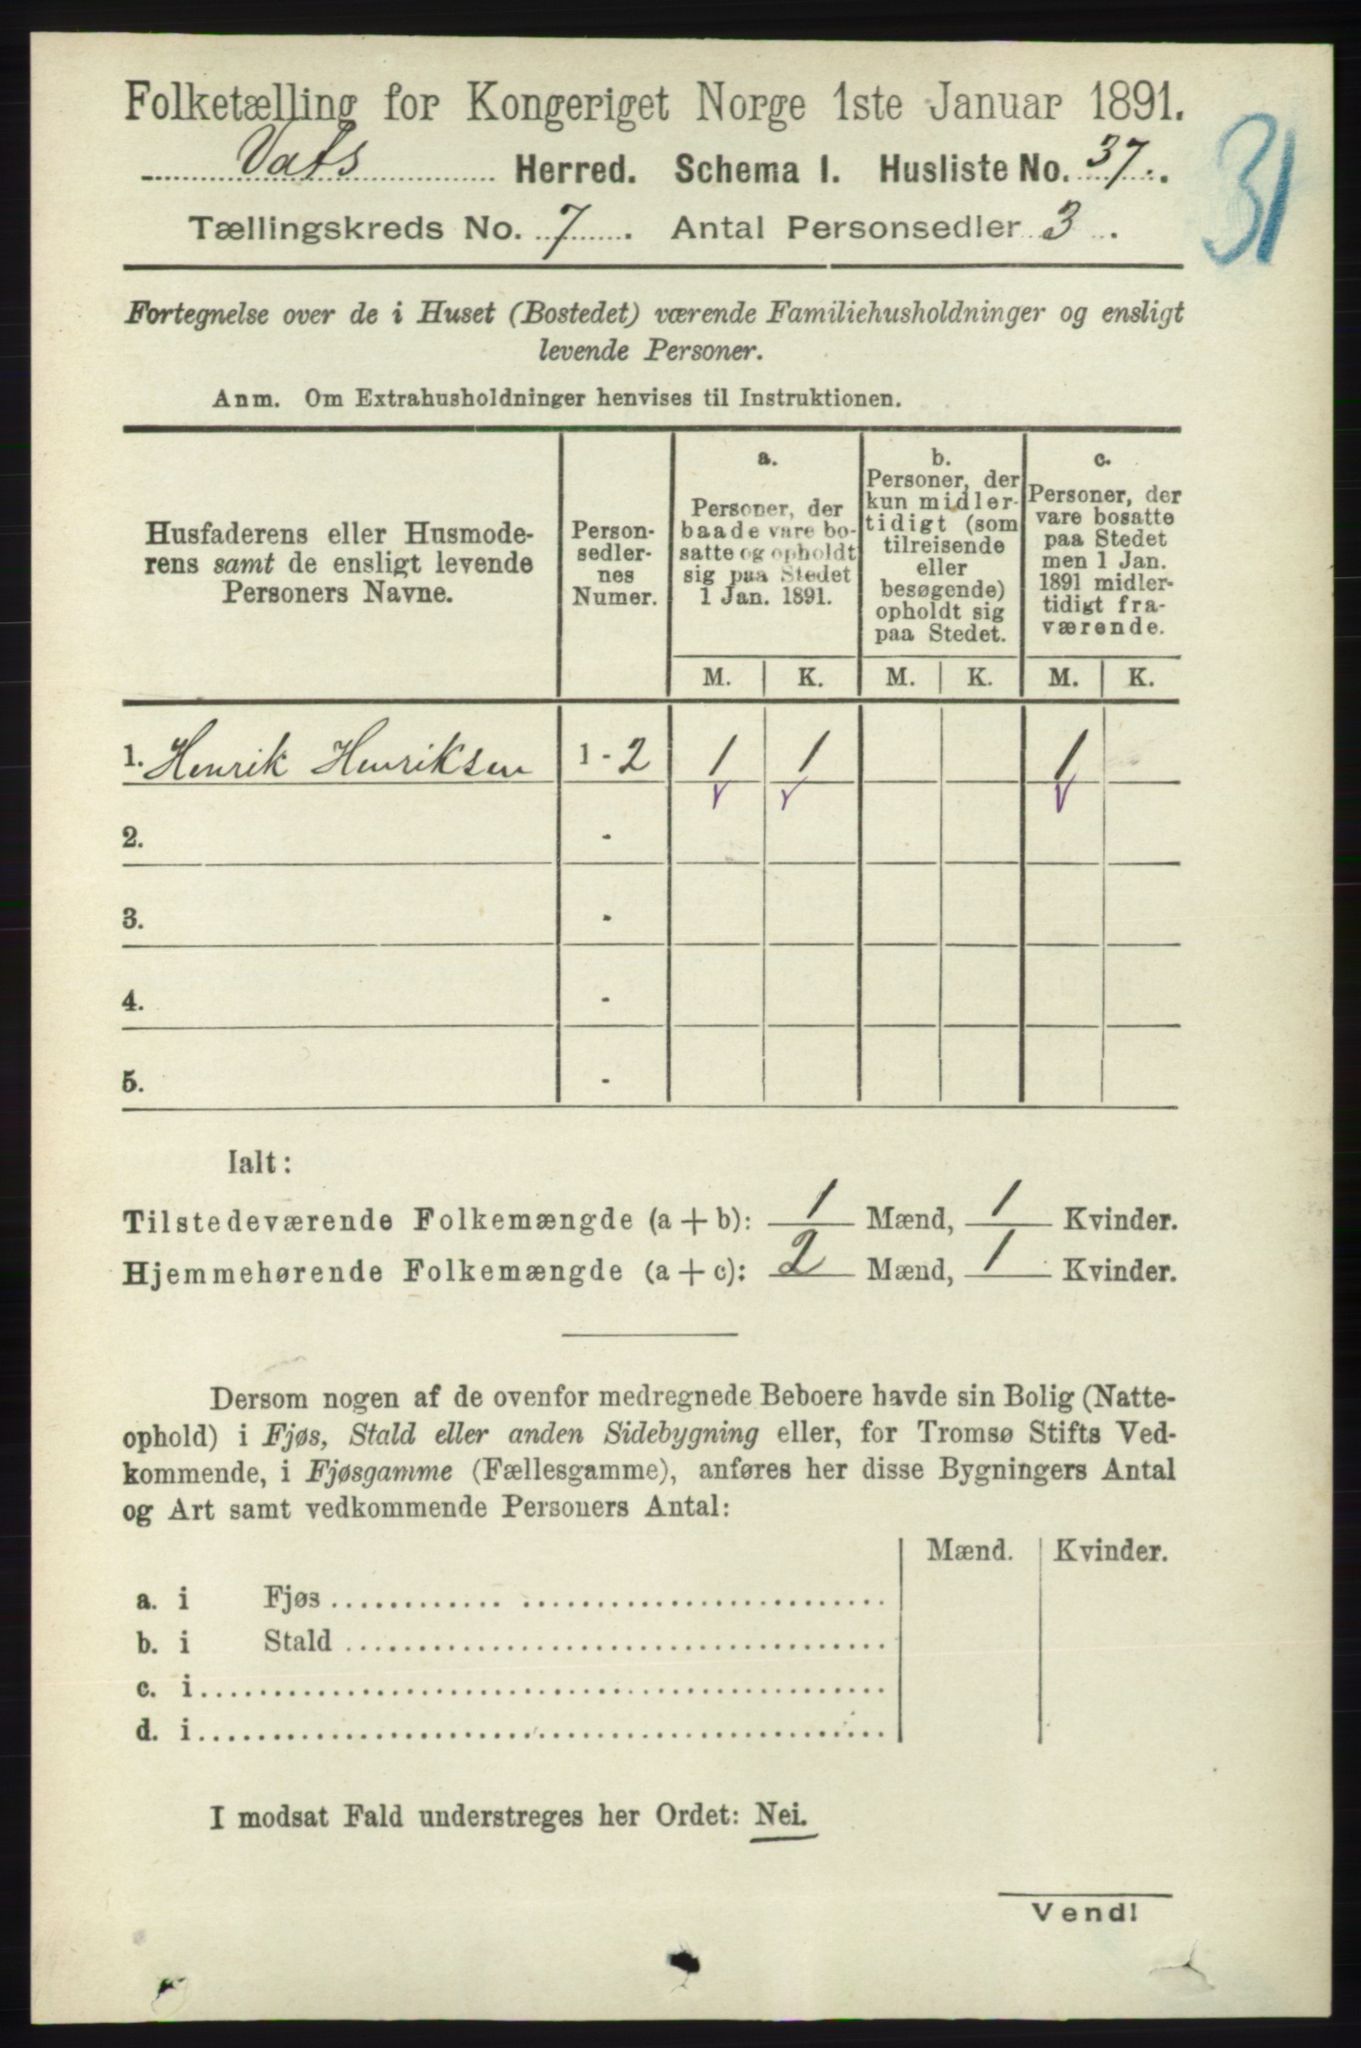 Folketælling for Kongeriget Norge 1ste Januar 1891.
31
Vats Herred. Schema I. Husliste No. 37.
Tællingskreds No. 7. Antal Personsedler 3.
Fortegnelse over de i Huset (Bostedet) værende Familiehusholdninger og ensligt
levende Personer.
Anm. Om Extrahusholdninger henvises til Instruktionen.
Husfaderens eller Husmode-
rens samt de ensligt levende
Personers Navne.
Person-
sedler-
nes
Numer.
a.
Personer, der
baade vare bo-
satte og opholdt
sig paa Stedet
1 Jan. 1891.
b.
Personer, der
kun midler-
tidigt (som
tilreisende
eller
besøgende)
opholdt sig
paa Stedet.
c.
Personer, der
vare bosatte
paa Stedet
men 1 Jan.
1891 midler-
tidigt fra-
værende.
M. K. M. K. M. K.
1. Henrik Henriksen 1 - 2 1 1 1
2. -
3. -
4. -
5. -
Ialt:
Tilstedeværende Folkemængde (a + b): 1 Mænd, 1 Kvinder.
Hjemmehørende Folkemængde (a + c): 2 Mænd, 1 Kvinder.
Dersom nogen af de ovenfor medregnede Beboere havde sin Bolig (Natte-
ophold) i Fjøs, Stald eller anden Sidebygning eller, for Tromsø Stifts Ved-
kommende, i Fjøsgamme (Fællesgamme), anføres her disse Bygningers Antal
og Art samt vedkommende Personers Antal:
Mænd. Kvinder.
a. i Fjøs
b. i Stald
c. i
d. i
I modsat Fald understreges her Ordet: Nei.
Vend!